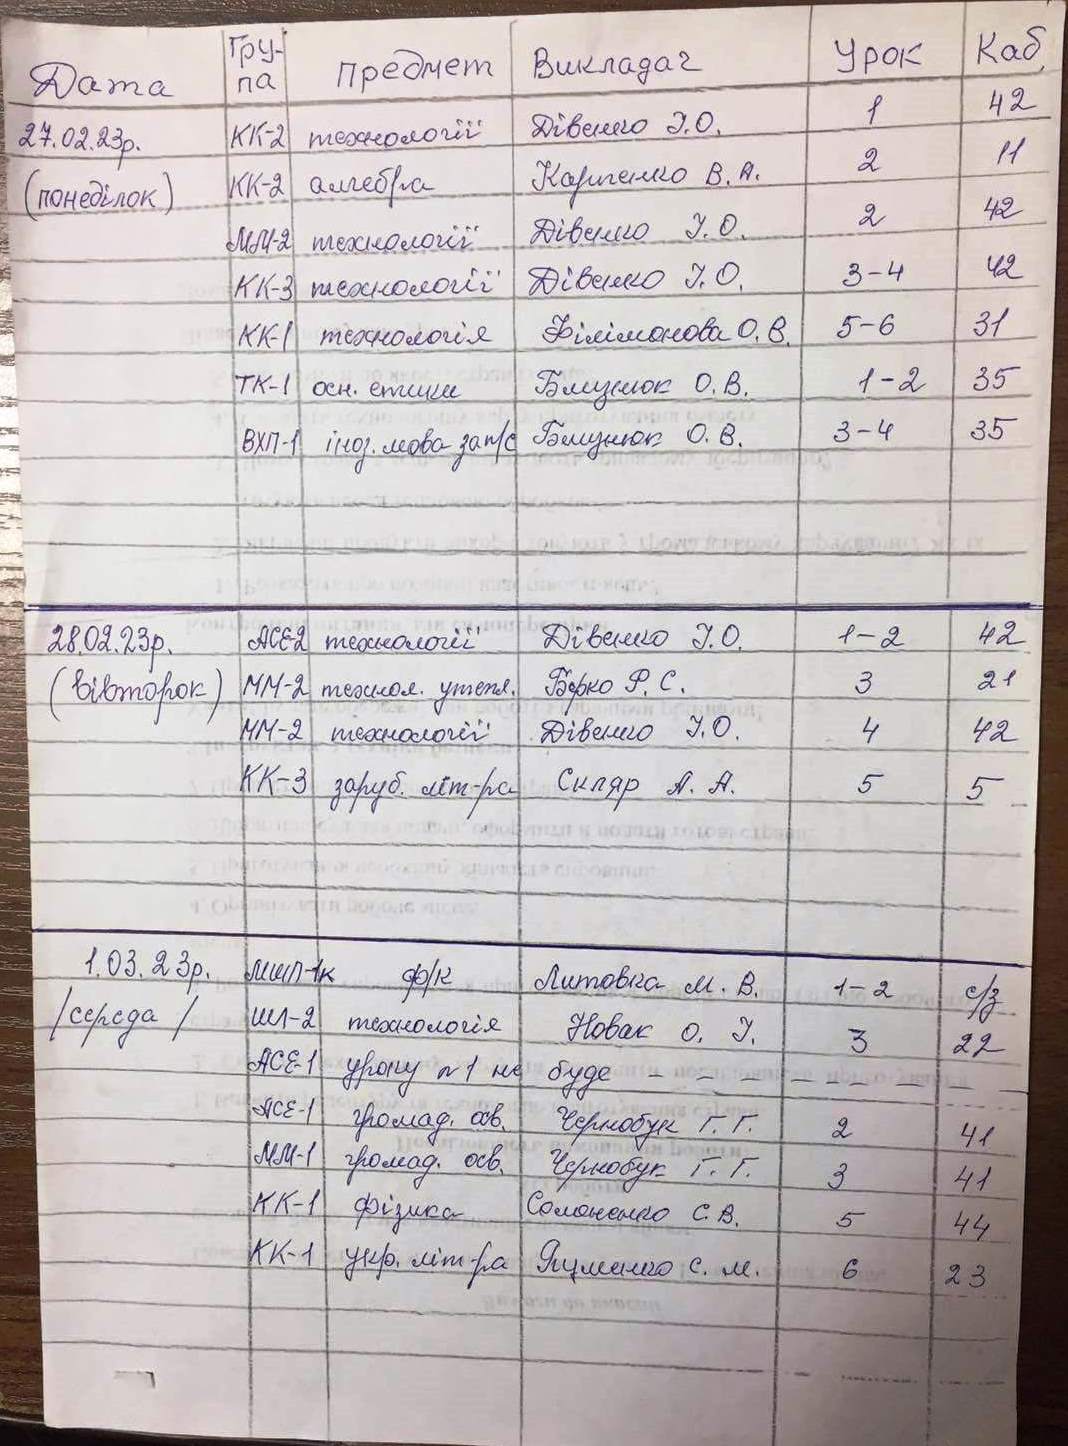 Дата Гру-па предмет Викладач Урок Каб.
27.02.23р. КК-2 технології Дівенко І.О. 1 42
(понеділок) КК-2 алгебра Карпенко В.А. 2 11
ММ-2 технології Дівенко І.О. 2 42
КК-3 технології Дівенко І.О. 3-4 42
КК-1 технологія Філімонова О.В. 5-6 31
ТК-1 осн. етики Близнюк О.В. 1-2 35
ВХП-1 іноз. мова за п/с Близнюк О.В. 3-4 35
28.02.23р. АСЕ-2 технології Дівенко І.О. 1-2 42
(вівторок) ММ-2 технол. утепл. Берко Р.С. 3 21
ММ-2 технології Дівенко І.О. 4 42
КК-3 заруб. літ-ра Скляр А.А. 5 5
1.03.23р. МШП-1к ф/к Литовка М.В. 1-2 с/з
/середа/ ШЛ-2 технологія Новак О.І. 3 22
АСЕ-1 уроку №1 не буде - - - - - - - -
АСЕ-1 громад. осв. Чернобук Г.Г. 2 41
ММ-1 громад. осв. Чернобук Г.Г. 3 41
КК-1 фізика Солоненко С.В. 5 44
КК-1 укр. літ-ра Яцменко С.М. 6 23